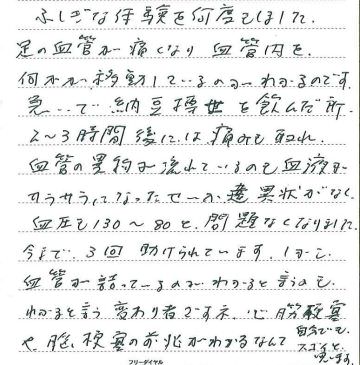 ふしぎな体験を何度もしました。
足の血管が痛くなり 血管内を、
何かが移動しているのがわかるのです。
急いで納豆樽世を飲んだ所
2～3時間後には痛みも取れ、
血管の異物が流れているのも血液が
サラサラになったせーか、異状がなく
血圧も130～80と、問題なくなりました。
今まで、3回助けられています。しかし
血管が詰っているのがわかると言うのも
わかると言う変わり者ですネ、心筋梗塞
や、脳梗塞の前兆がわかるなんて
自分でも、
スゴイと、
思います。
フリーダイヤル